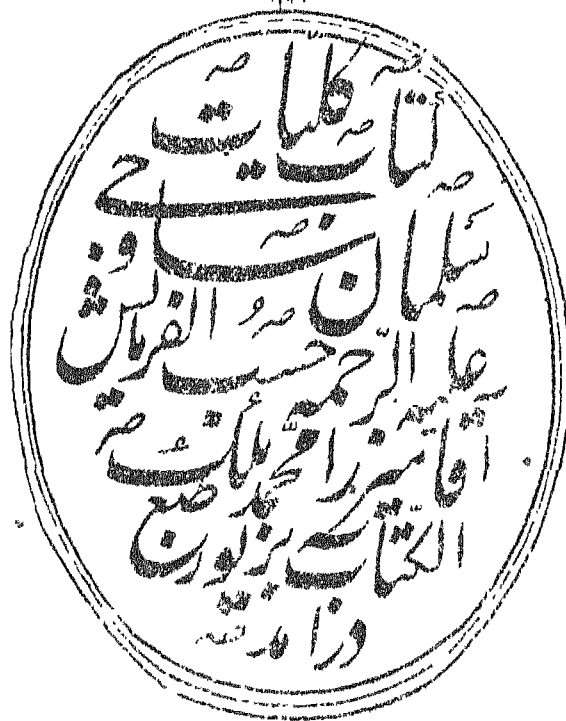 کتاب کلیات
سلمان ساوجی
علیه الرحمه حسب الفرمایش
آقا میرزا محمد ملک
الکتاب بزیور طبع
درامد